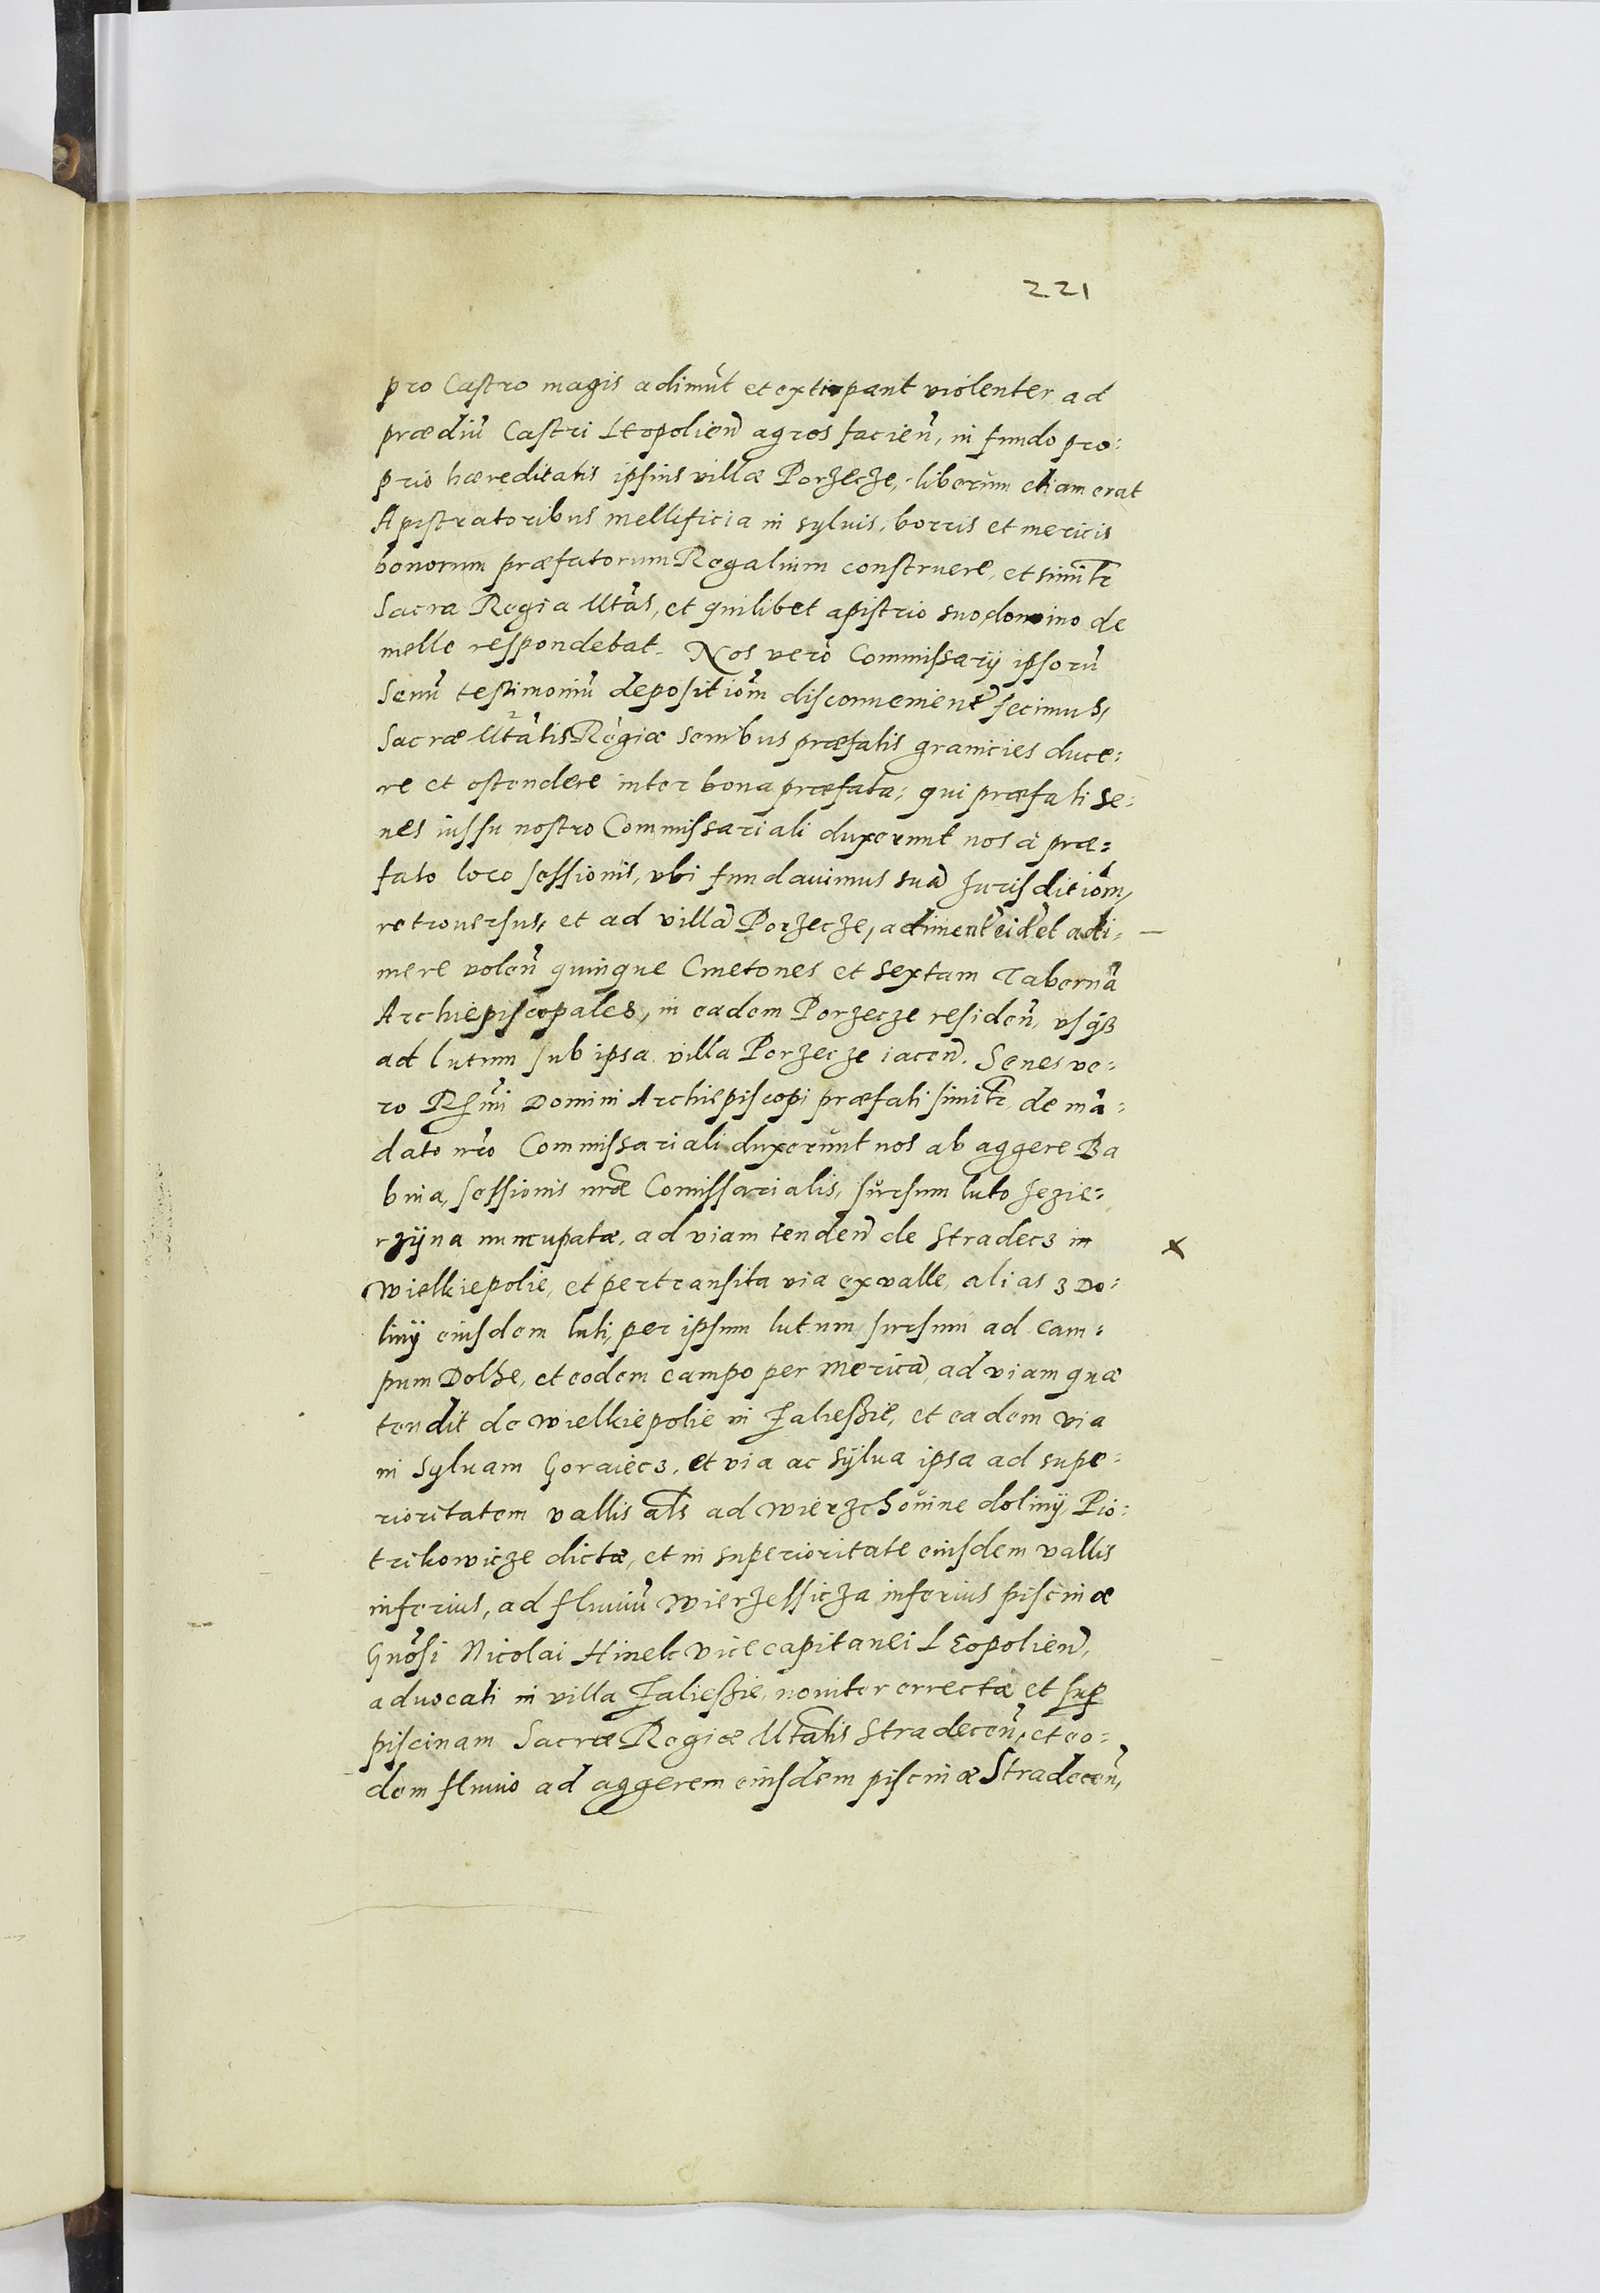 221
pro Castro magis adimūt et extirpant violenter ad
prædiū Castri Leopolieñ agros facieñ, in fundo pro:
prio hæreditatis ipsius villæ Porzecze, liberum etiam erat
Apistratoribus mellificia in sylvis, borris et mericis
bonorum præfatorum Regalium construere, et similr̃
Sacra Regia Mtãs, et quilibet apistrio suo domino de
melle respondebat. Nos verò Commissarij ipsorū
Senū testimoniū depositiom̃ disconvenient̃ fecimus,
Sacræ Mtãtis Regiæ senibus præfatis granicies duce:
re et ostendere inter bona præfata: qui præfati se:
nes iussu nostro Commissariali duxerunt nos à præ:
fato loco sessionis, vbi fundavimus suã Jurisditiom̃,
retroversus, et ad villã Porzecze, adiment eid et adi:
mere voleñ quinque Cmetones et sextam Tabernã
Archiepiscopales, in eadem Porzecze resideñ, vsqʒ
ad lutum sub ipsa villa Porzecze iaceñ. Senes ve:
ro Rs̃mi Domini Archiepiscopi præfati similr̃ de mã:
dato nr̃o Commissariali duxerūnt nos ab aggere Ba
bina, sessionis nr̃æ Comissarialis, sūrsum luto Jezie:
rzÿna nuncupatæ, ad viam tendeñ de Stradecz in
Wielkiepolie, et pertransita via ex valle, alias z Do:
linÿ eiusdem luti, per ipsum lutum sursum ad cam:
pum Dolhe, et eodem campo per Mericã, ad viam quæ
tendit de Wielkiepolie in Zalieszie, et eadem via
in Sylvam Goraiecz, et via ac Sÿlva ipsa ad supe:
rioritatem vallis als̃ ad Wierzchowine dolinÿ, Pio:
trikowicze dictæ, et in superioritate eiusdem vallis
inferius, ad fluviū Wierzessicza inferius piscinæ
Gnõsi Nicolai Hinek vicecapitanei Leopolieñ,
advocati in villa Zalieszie, noviter errectæ et sup
piscinam Sacræ Regiæ Mtãtis Stradeceñ, et eo:
dem fluvio ad aggerem eiusdem piscinæ Stradeceñ,